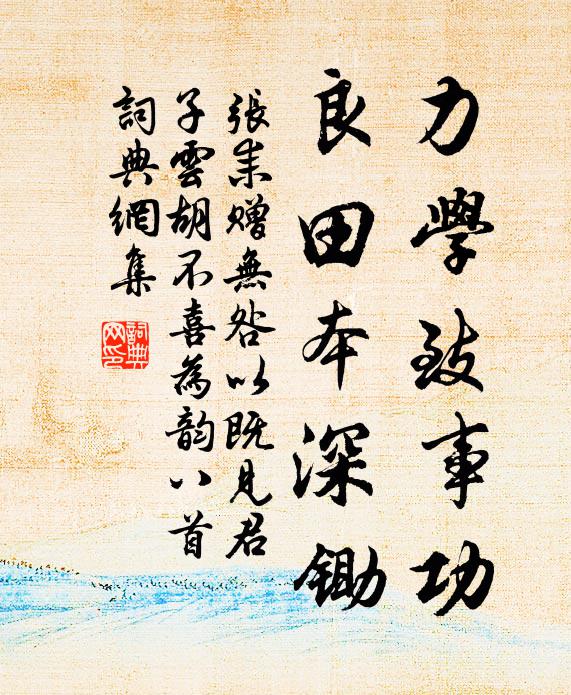 力學致事功
良田本深鋤
張耒贈無咎以既見君
子雲胡不喜為韵八首
詞典網集
詞典
网印